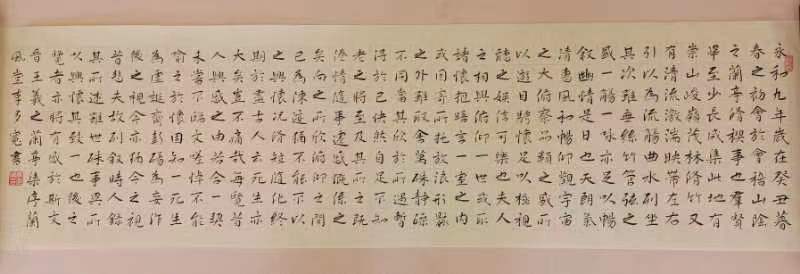 永和九年歲在癸丑暮
春之初會於會稽山陰
之蘭亭脩禊事也羣賢
畢至少長咸集此地有
崇山峻嶺茂林脩竹又
有清流激湍映帶左右
引以為流觴曲水列坐
其次雖無絲竹管弦之
盛一觴一詠亦足以暢
敘幽情是日也天朗氣
清惠風和暢仰觀宇宙
之大俯察品類之盛所
以遊目騁懷足以極視
聽之娛信可樂也夫人
之相與俯仰一世或取
諸懷抱晤言一室之內
或因寄所託放浪形骸
之外雖取舍萬殊靜躁
不同當其欣於所遇暫
得於己快然自足不知
老之將至及其所之既
惓情隨事遷感慨係之
矣向之所欣俯仰之間
已為陳迹猶不能不以
之興懷況脩短隨化終
期於盡古人云死生亦
大矣豈不痛哉每覽昔
人興感之由若合一契
未嘗不臨文嗟悼不能
喻之於懷固知一死生
為虛誕齊彭殤為妄作
後之視今亦猶今之視
昔悲夫故列敘時人錄
其所述雖世殊事異所
以興懷其致一也後之
覽者亦將有感於斯文
晉王羲之蘭亭集序蘭
風堂李書